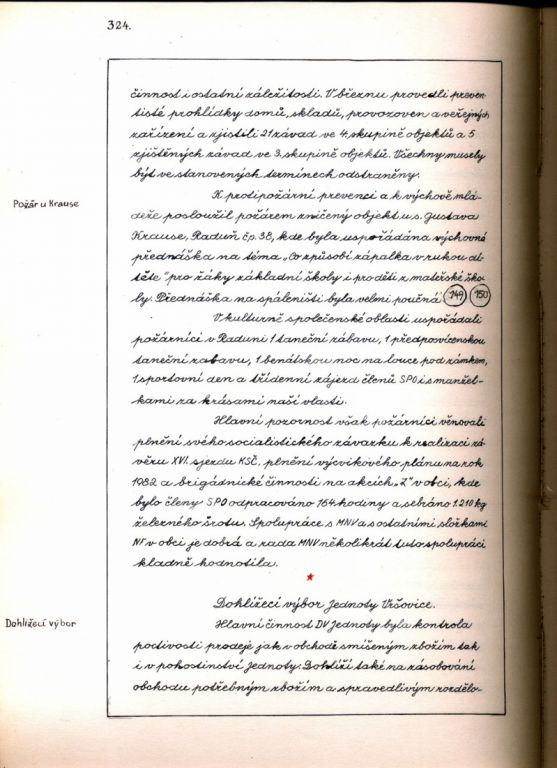 324.
činnost i ostatní záležitosti. V březnu provedli preven-
tisté prohlídky domů, skladů, provozoven a veřejných
zařízení a zjistili 21 závad ve 4. skupině objektů a 5
zjištěných závad ve 3. skupině objektů. Všechny musely
být ve stanovených termínech odstraněny.
Požár u Krause
K protipožární prevenci a k výchově mlá-
deže posloužil požárem zničený objekt u s. Gustava
Krause, Raduň čp. 38, kde byla uspořádána výchovná
přednáška na téma „Co způsobí zápalka v rukou dí-
těte" pro žáky základní školy i pro děti z mateřské ško-
ly. Přednáška na spáleništi byla velmi poučná. 149 150
V kulturně společenské oblasti uspořádali
požárníci v Raduni 1 taneční zábavu, 1 předposvícenskou
taneční zabavu, 1 benátskou noc na louce pod zámkem,
1 sportovní den a třídenní zájezd členů SPO i s manžel-
kami za krásami naší vlasti.
Hlavní pozornost však požárníci věnovali
plnění svého socialistického závazku k realizaci zá-
věru XVI. sjezdu KSČ, plnění výcvikového plánu na rok
1982 a brigádnické činnosti na akcích „Z" v obci, kde
bylo členy SPO odpracováno 164 hodiny a sebráno 1.210 kg
železného šrotu. Spolupráce s MNV a s ostatními složkami
NF v obci je dobrá a rada MNV několikrát tuto spolupráci
kladně hodnotila.
Dohlížecí výbor Jednoty Vršovice.
Dohlížecí výbor
Hlavní činnost DV Jednoty byla kontrola
poctivosti prodeje jak v obchodě smíšeným zbožím tak
i v pohostinství Jednoty. Dohlíží také na zásobování
obchodu potřebným zbožím a spravedlivým rozdělo-